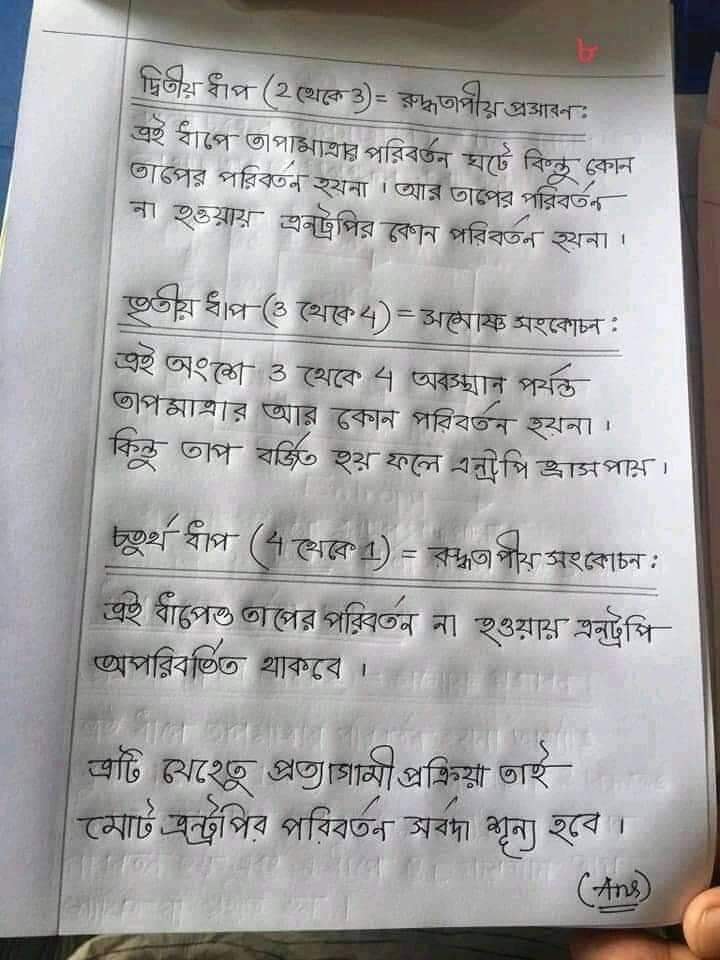 ৮
দ্বিতীয় ধাপ (2 থেকে 3) = রুদ্ধতাপীয় প্রসারন:
এই ধাপে তাপামাত্রার পরিবর্তন ঘটে কিন্তু কোন
তাপের পরিবর্তন হয়না। আর তাপের পরিবর্তন
না হওয়ায় এনট্রপির কোন পরিবর্তন হয়না।
তৃতীয় ধাপ (3 থেকে 4) = সমোষ্ণ সংকোচন:
এই অংশে 3 থেকে 4 অবস্থান পর্যন্ত
তাপমাত্রার আর কোন পরিবর্তন হয়না।
কিন্তু তাপ বর্জিত হয় ফলে এনট্রপি হ্রাস পায়।
চতুর্থ ধাপ (4 থেকে 1) = রুদ্ধতাপীয় সংকোচন:
এই ধাপেও তাপের পরিবর্তন না হওয়ায় এনট্রপি
অপরিবর্তিত থাকবে।
এটি যেহেতু প্রত্যাগামী প্রক্রিয়া তাই
মোট এনট্রপির পরিবর্তন সর্বদা শূন্য হবে।
(Ans)